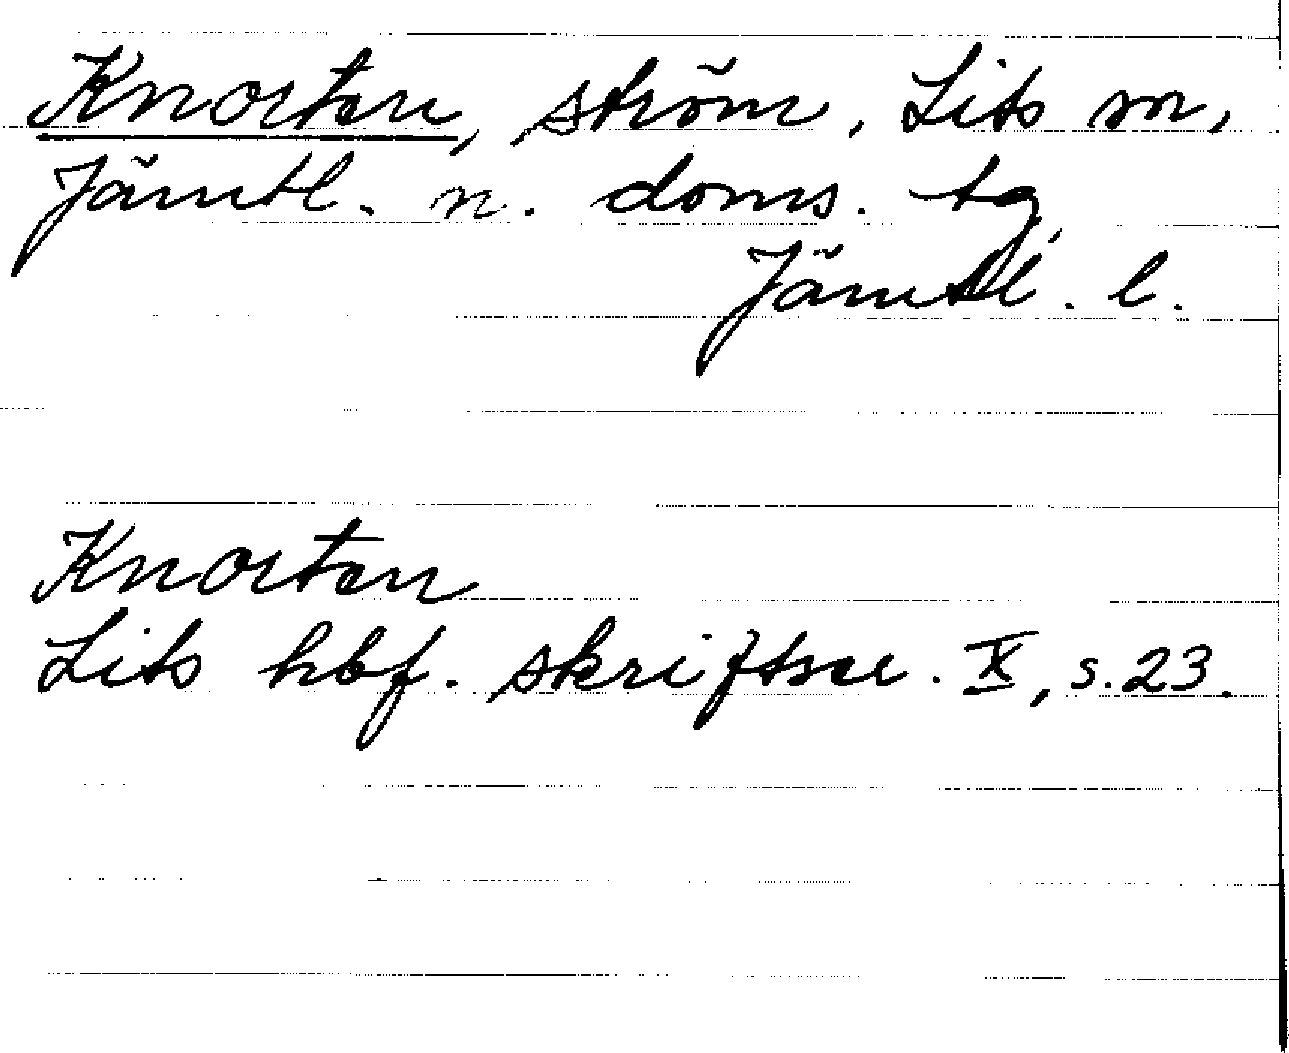 Knorten, ström, Lits sn,
Jämtl. n. doms. tg,
Jämtl. l.
Knorten
Lits hbf. skriftser. IX, s. 23.